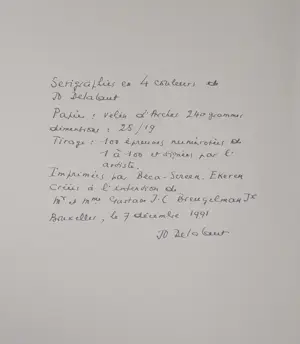 Serigraphies en 4 couleurs de
JO Delahaut
Papier : velin d'Arches 240 grammes
dimensions : 28/19
Tirage : 100 épreuves numérotées de
1 à 100 et signées par l'
artiste.
Imprimées par Beca-Screen. Ekeren
Créées à l'intention de
Mr et Mme Gaston J.C Breugelman Jr
Bruxelles, le 7 décembre 1991
JO Delahaut